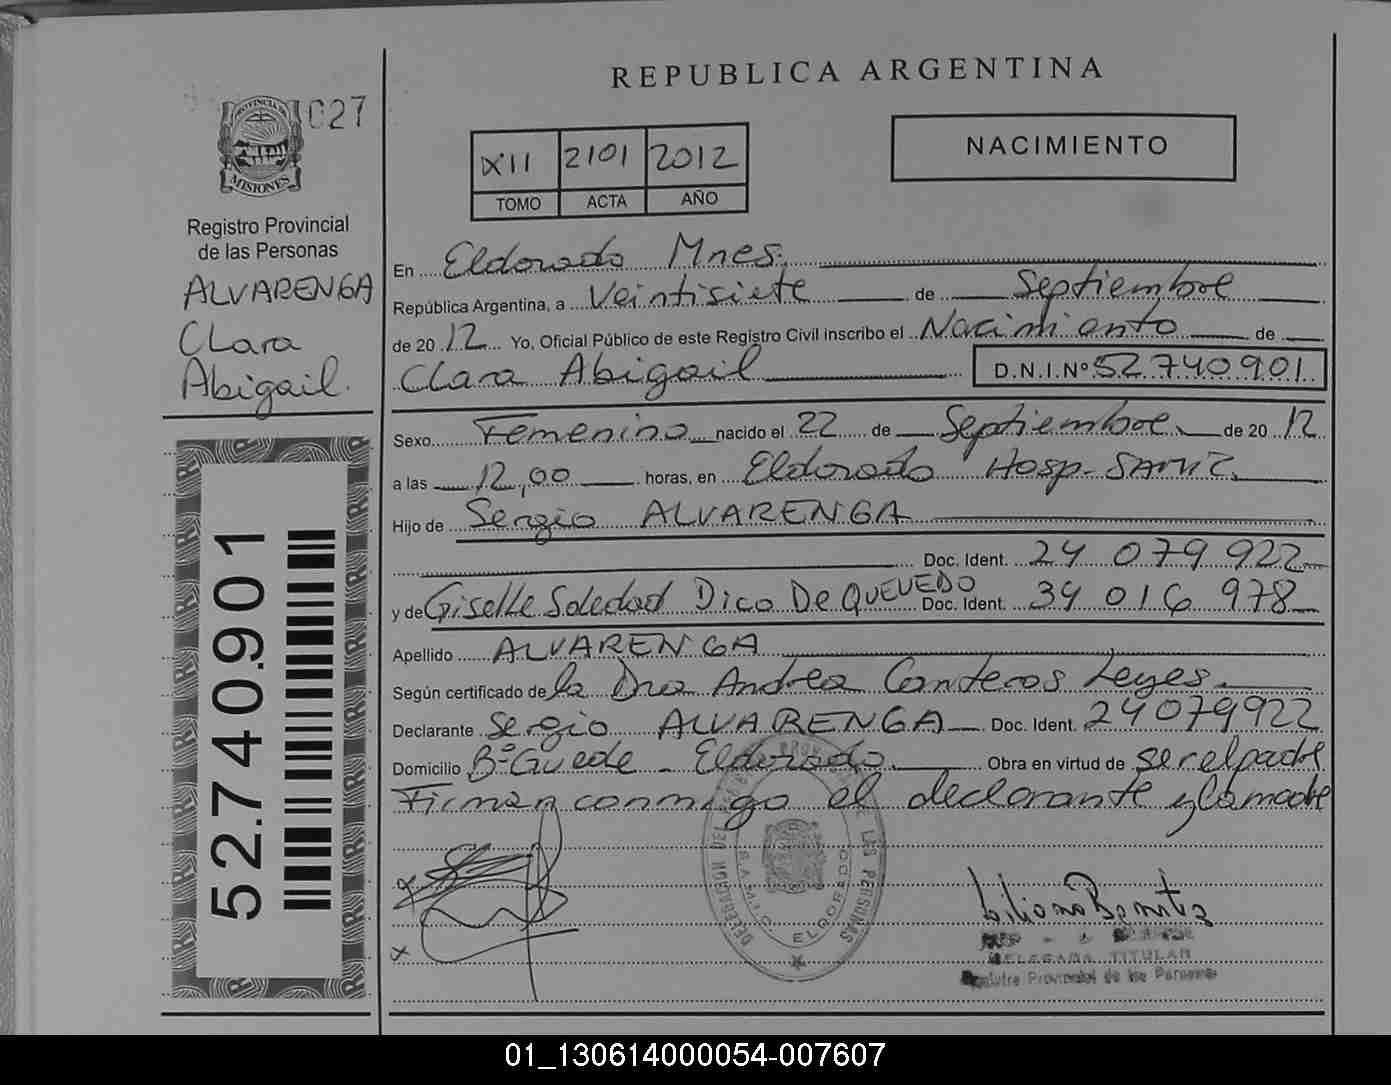 027
PROVINCIA DE
MISIONES
Registro Provincial
de las Personas
ALVARENGA
Clara
Abigail.
52.740.901
REPUBLICA ARGENTINA
XII 2101 2012
TOMO ACTA AÑO
NACIMIENTO
En Eldorado Mnes.
República Argentina, a Veintisiete de Septiembre
de 2012 Yo, Oficial Público de este Registro Civil inscribo el Nacimiento de
Clara Abigail D.N.I.Nº 52.740.901
Sexo Femenino nacido el 22 de Septiembre de 2012
a las 12,00 horas, en Eldorado Hosp. SAMIC.
Hijo de Sergio ALVARENGA
Doc. Ident. 24 079 922
y de Giselle Soledad Dico De QUEVEDO Doc. Ident. 34 016 978
Apellido ALVARENGA
Según certificado de la Dra Andrea Canteros Leyes.
Declarante Sergio ALVARENGA Doc. Ident. 24079922
Domicilio Bº Guede - Eldorado. Obra en virtud de ser el padre
Firman conmigo el declarante y la madre
x
x
DELEGACION DEL REGISTRO PROVINCIAL DE LAS PERSONAS
S.A.M.I.C. ELDORADO
Liliana Benitez
DELEGADA TITULAR
Registro Provincial de las Personas
01_130614000054-007607